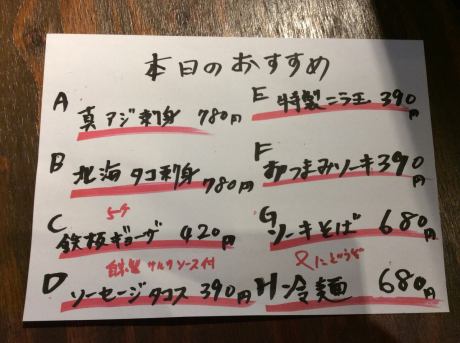 本日のおすすめ
A 真アジ刺身 780円
B 北海タコ刺身 780円
C 鉄板ギョーザ 420円
5ヶ
D ソーセージタコス 390円
自家製サルサソース付
E 特製ニラ玉 390円
F おつまみソーキ 390円
G ソーキそば 680円
〆にどうぞ
H 冷麺 680円